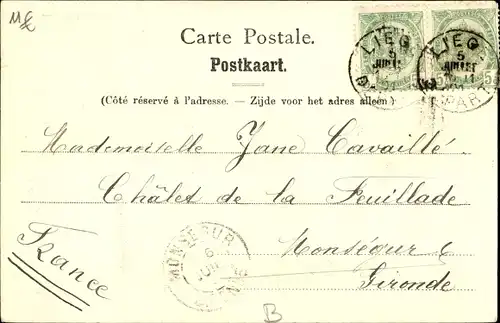 Carte Postale.
Postkaart.
(Côté réservé à l'adresse. – Zijde voor het adres alleen)
LIEG
5
JUILLET
LIEG
5
JUILLET
Mademoiselle Jane Cavaillé
Châlet de la Feuillade
Monségur
Gironde
France
MONSEGUR
6
B